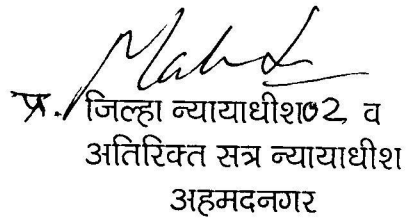 प्र. जिल्हा न्यायाधीश०2 व
अतिरिक्त सत्र न्यायाधीश
अहमदनगर